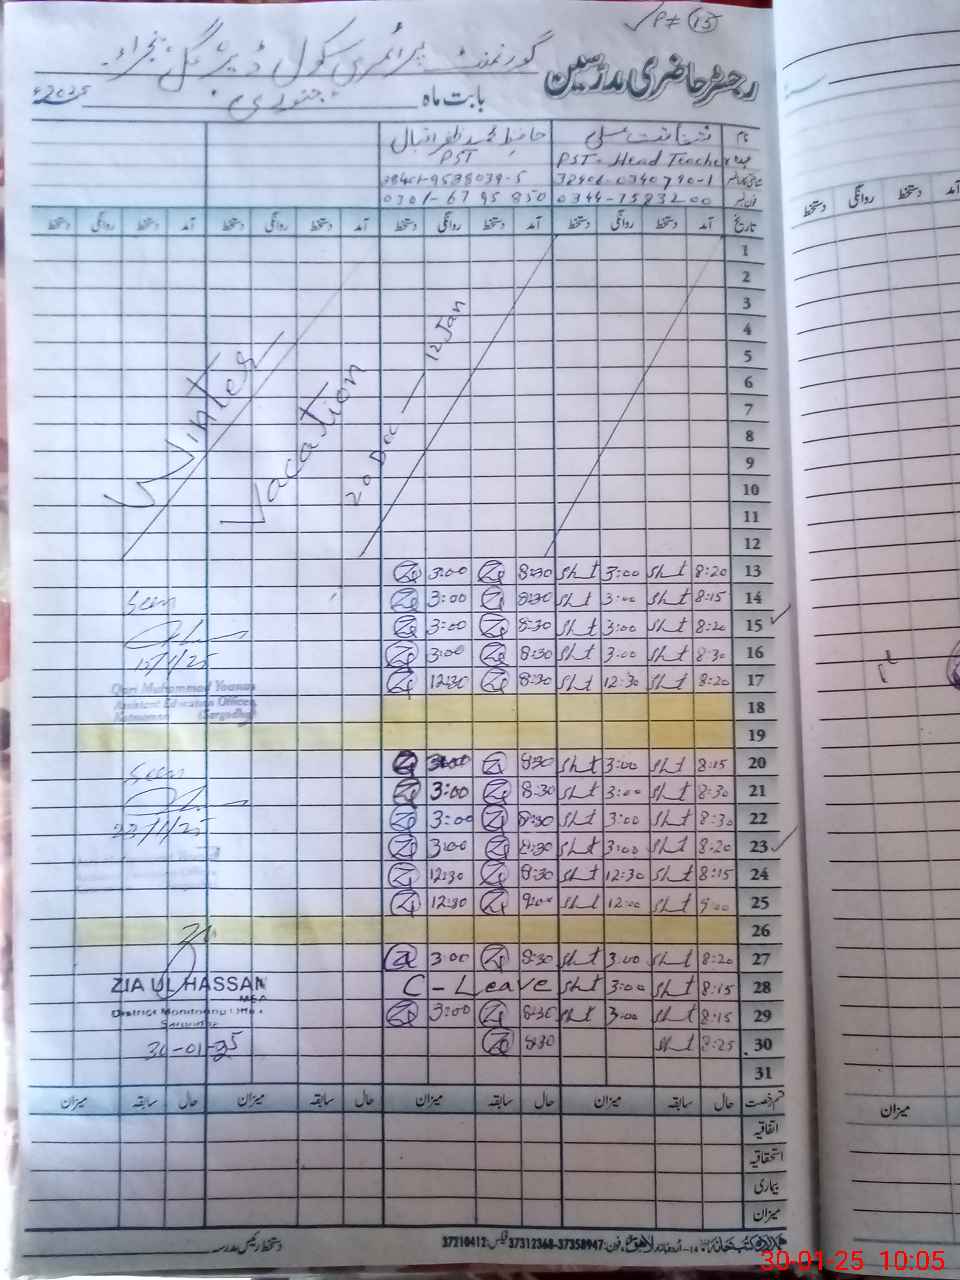 P# 15
رجسٹر حاضری مدرسین
گورنمنٹ پرائمری سکول
بابت ماہ جنوری 2025ء
نام حافظ محمد ظفر اقبال
عہدہ PST-Head Teacher PST
38401-0340790-1 38401-9538039-5
فون نمبر 0344-7583200 0301-6795850
تاریخ آمد دستخط روانگی دستخط آمد دستخط روانگی دستخط آمد دستخط روانگی دستخط آمد دستخط روانگی دستخط
1
2
3
4
5
6
7
8
9
10
11
12
Winter
Vacation
20 Dec — 12 Jan
13 8:20 Sht 3:00 Sht 8:30 3:00
14 8:15 Sht 3:00 Sht 8:30 3:00
15 8:20 Sht 3:00 Sht 8:30 3:00
16 8:30 Sht 3:00 Sht 8:30 3:00
17 8:20 Sht 12:30 Sht 8:30 12:30
18
19
20 8:15 Sht 3:00 Sht 8:30 3:00
21 8:30 Sht 3:00 Sht 8:30 3:00
22 8:30 Sht 3:00 Sht 8:30 3:00
23 8:20 Sht 3:00 Sht 8:30 3:00
24 8:15 Sht 12:30 Sht 8:30 12:30
25 9:00 Sht 12:00 Sht 9:00 12:30
26
27 8:20 Sht 3:00 Sht 8:30 3:00
28 8:15 Sht 3:00 Sht C-Leave
29 8:15 Sht 3:00 Sht 8:30 3:00
30 8:25 Sht 8:30
31
Seen
15/1/25
Qari Muhammad Younas
Assistant Education Officer
Seen
23/1/25
ZIA UL HASSAN
MEA
District Monitoring
30-01-25
قسم رخصت حال سابقہ میزان حال سابقہ میزان حال سابقہ میزان حال سابقہ میزان
اتفاقیہ
استحقاقیہ
بیماری
میزان
فون: 37358947-37312368 فیکس: 37210412
دستخط رئیس مدرسہ
آمد دستخط روانگی دستخط
میزان
30-01-25 10:05